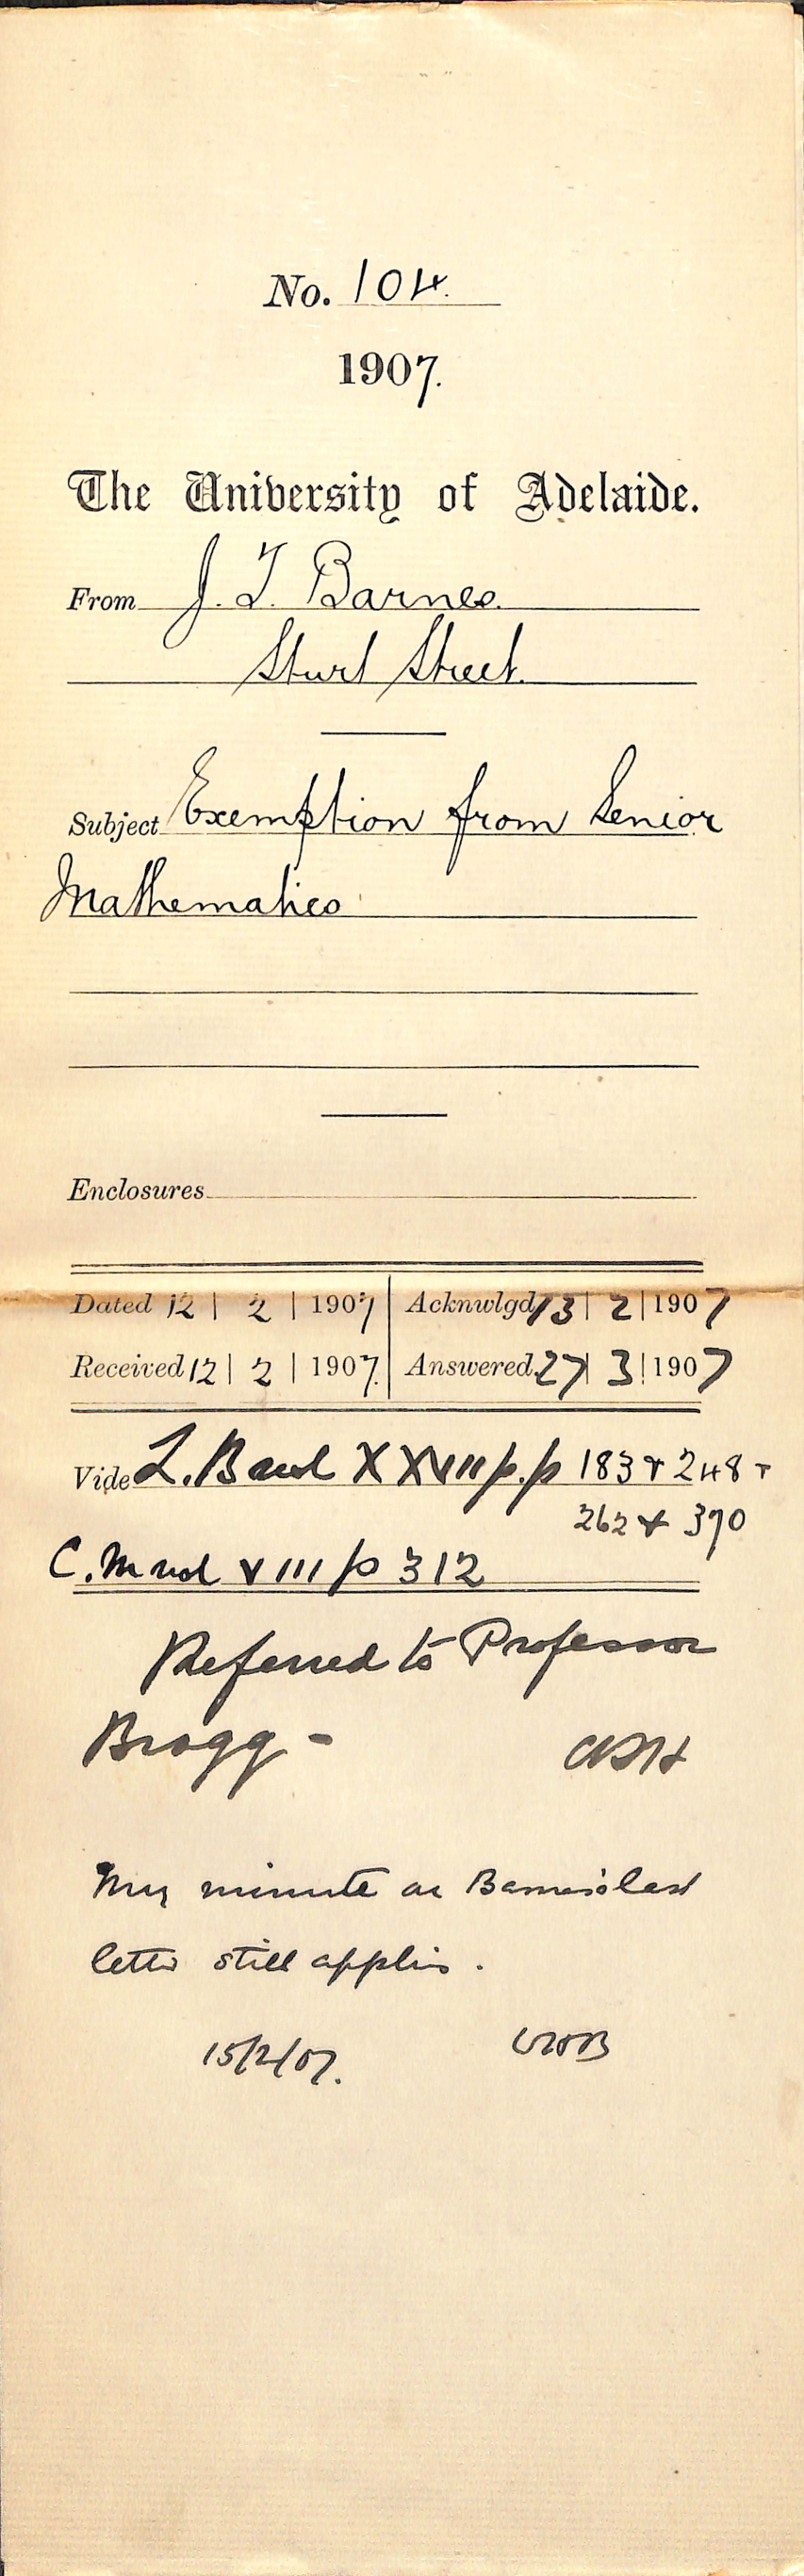 No. 104.
1907.
The University of Adelaide.
From J. T. Barnes.
Sturt Street.
Subject Exemption from Senior
Mathematics
Enclosures
Dated 12 | 2 | 1907 Acknwlgd 13 | 2 | 1907
Received 12 | 2 | 1907. Answered 27 | 3 | 1907
Vide L. B vol XXVII p.p 183 & 248 &
262 & 370
C. M vol VIII p 312
Referred to Professor
Bragg -
My minute on Barnes's last
letter still applies.
15/2/07. WHB